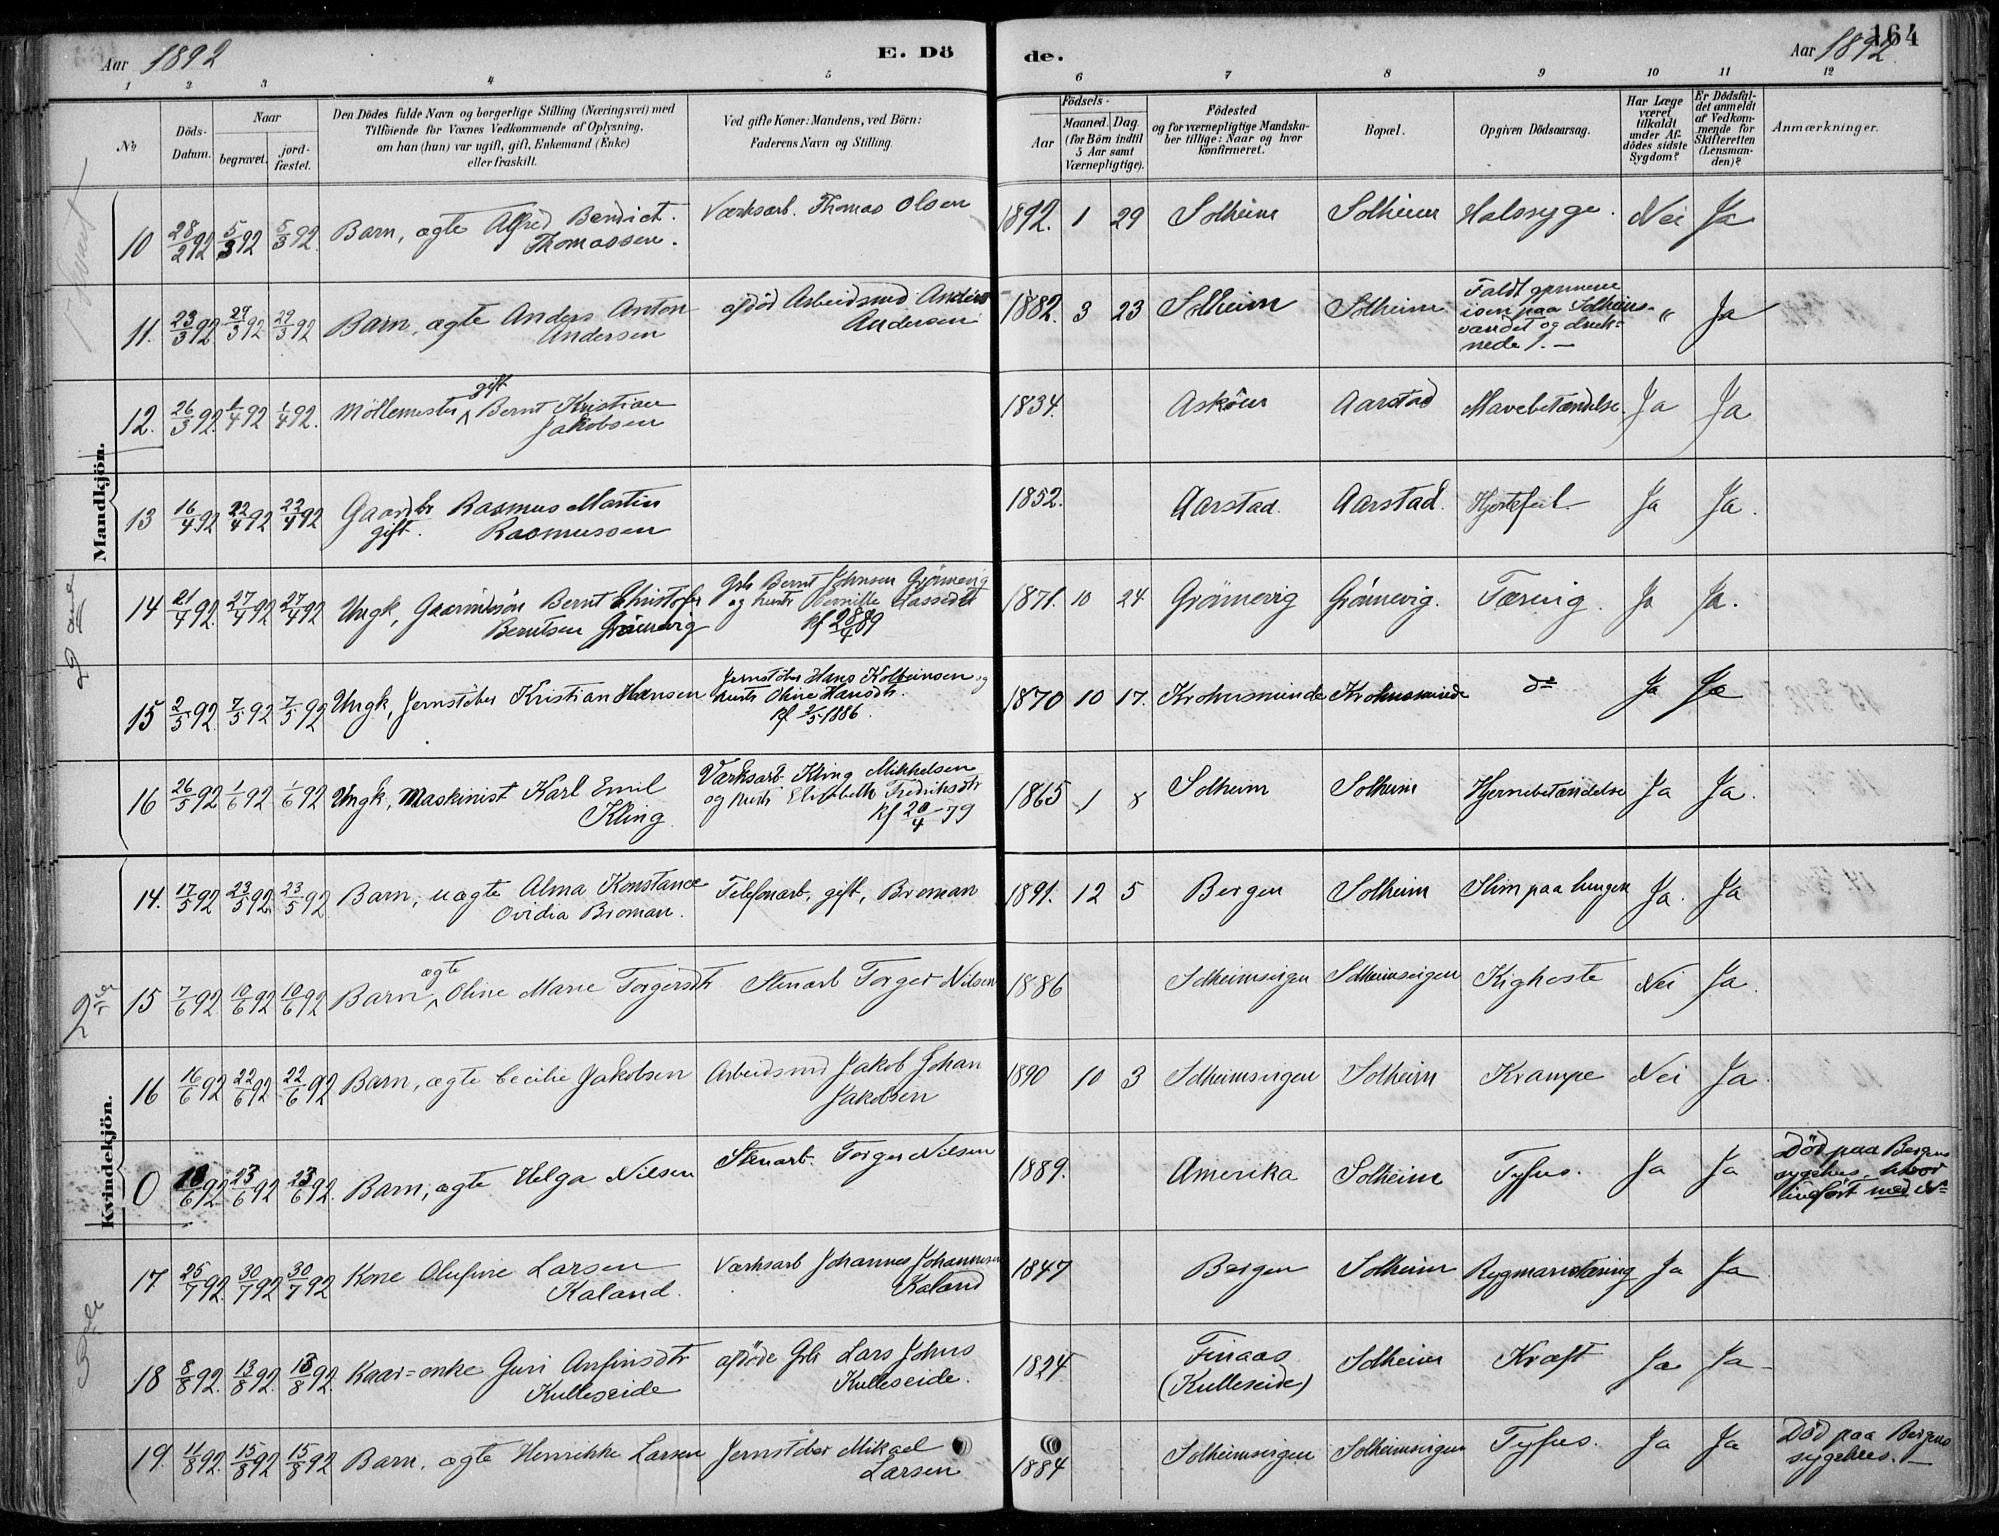 Aar 1892
E. Dö
de.
Aar 1892.
164
1 2 3 4 5 6 7 8 9 10 11 12
No
Döds-
Datum.
Naar
begravet.
jord-
fæstet.
Den Dödes fulde Navn og borgerlige Stilling (Næringsvei) med
Tilföiende for Voxnes Vedkommende af Oplysning,
om han (hun) var ugift, gift, Enkemand (Enke)
eller fraskilt.
Ved gifte Koner: Mandens, ved Börn:
Faderens Navn og Stilling.
Födsels-
Aar
Maaned. Dag.
(for Börn indtil
5 Aar samt
Værnepligtige).
Födested
og for værnepligtige Mandska-
ber tillige: Naar og hvor
konfirmeret.
Bopæl.
Opgiven Dödsaarsag.
Har Læge
været
tilkaldt
under Af-
dödes sidste
Sygdom?
Er Dödsfal-
det anmeldt
af Vedkom-
mende for
Skifteretten
(Lensman-
den)?
Anmærkninger.
Mandkjön.
10 28/2 92 5/3 92 5/3 92. Barn, ægte Alfred Bendict. Thomassen. Værksarb. Thomas Olsen 1892. 1 29 Solheim Solheim Halssyge. Nei Ja
11. 23/3 92 29/3 92 29/3 92 Barn, ægte Anders Anton Andersen afdöd Arbeidsmd Anders Andersen 1882. 3 23 Solheim Solheim Faldt gjennem isen paa Solheims- vandet og druk- nede!. — " Ja
12. 26/3 92. 1/4 92 1/4 92. Möllemester gift Bernt Kristian Jakobsen 1834. Asköen Aarstad Mavebetændelse. Ja Ja
13 16/4 92 22/4 92 22/4 92 Gaardbr gift. Rasmus Martin Rasmussen 1852. Aarstad. Aarstad. Hjertefeil Ja Ja.
14 21/4 92. 27/4 92 27/4 92 Ungk, Gaardmdsön Bernt Christofer Berntsen Grönnevig Gbr Bernt Johnsen Grönnevig og hustr Lassedtr kf 28/4 89 1871. 10 24. Grönnevig Grönnevig. Tæring. Ja Ja.
15 2/5 92. 7/5 92 7/5 92 Ungk, Jernstöber Kristian Hansen Jernstöber Hans Kolbeinsen og hustr Oline Hansdtr. kf 2/5 1886. 1870 10 17. Krohnsminde Krohnsminde do Ja Ja
16 26/5 92 1/6 92 1/6 92 Ungk, Maskinist Karl Emil Kling Værksarb Kling Mikkelsen og hustr Elisabeth Fredriksdtr kf 20/4 - 79 1865 1 8 Solheim Solheim Hjernebetændelse Ja Ja.
Kvindekjön.
14. 17/5 92 23/5 92. 23/5 92 Barn, uægte Alma Konstance Ovidia Broman. Telefonarb. gift, Broman 1891. 12 5 Bergen Solheim Slim paa lungen Ja. Ja
15 7/6 92 10/6 92 10/6 92 Barn ægte Oline Marie Torgersdtr Stenarb Torger Nilsen 1886 Solheimsvigen Solheimsvigen Kighoste Nei Ja.
16 16/6 92 22/6 92 22/6 92 Barn, ægte Cecilie Jakobsen Arbeidsmd Jakob Johan Jakobsen 1890 10 3 Solheimsvigen Solheim Krampe Nei Ja.
0 18/6 92. 23/6 92 23/6 92. Barn, ægte Helga Nilsen Stenarb. Torger Nilsen 1889. Amerika Solheim Tyfus. Ja Ja Död paa Bergens sygehus, hvor
17 25/7 92. 30/7 92 30/7 92 Kone Olufine Larsen Kaland. Værksarb Johannes Johannesen Kaland 1847 Bergen Solheim Rygmarvstæring Ja Ja
18 8/8 92. 13/8 92. 13/8 92. Kaar-enke Guri Anfinsdtr Kulleseide afdöde Gbr Lars Johns Kulleseide. 1824 Finaas (Kulleseide) Solheim Kræft Ja Ja
19. 11/8 92. 15/8 92 15/8 92 Barn. ægte Henrikke Larsen Jernstöber Mikael Larsen 1884 Solheimsvigen Solheimsvigen Tyfus. Ja Ja Död paa Bergens sygehus. —